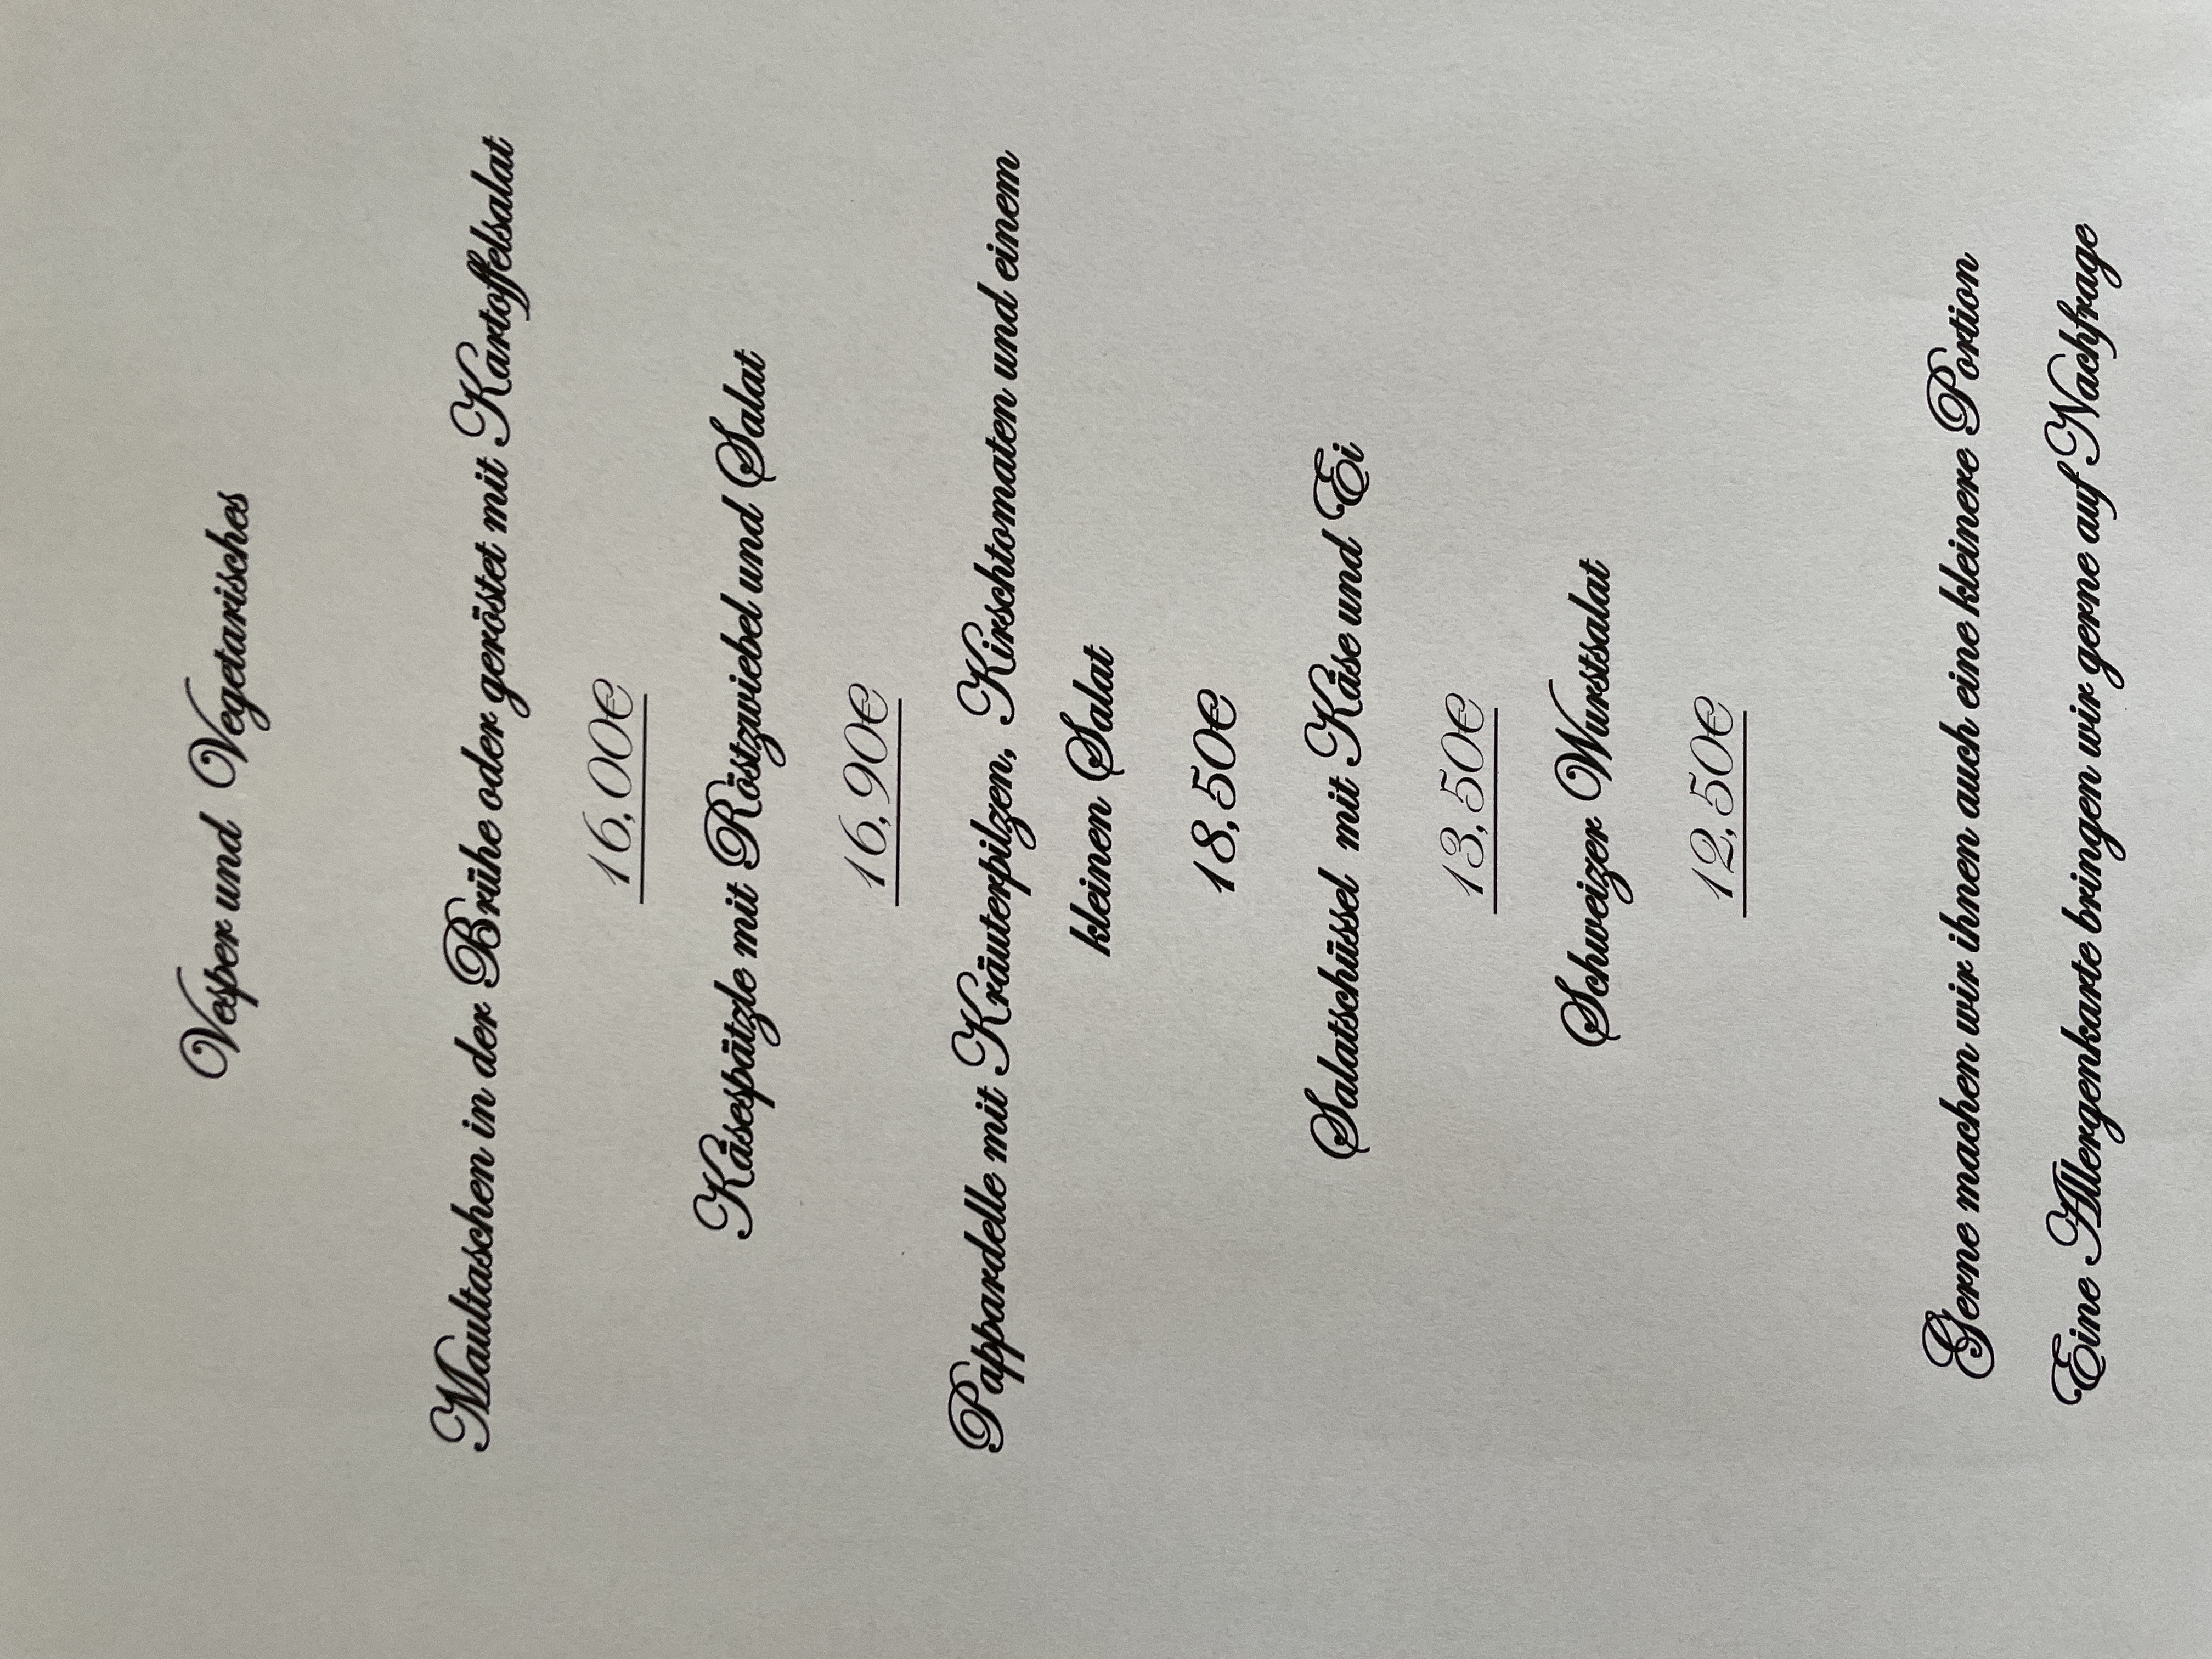 Vesper und Vegetarisches
Maultaschen in der Brühe oder geröstet mit Kartoffelsalat
16,00€
Käsespätzle mit Röstzwiebel und Salat
16,90€
Pappardelle mit Kräuterpilzen, Kirschtomaten und einem
kleinen Salat
18,50€
Salatschüssel mit Käse und Ei
13,50€
Schweizer Wurstsalat
12,50€
Gerne machen wir ihnen auch eine kleinere Portion
Eine Allergenkarte bringen wir gerne auf Nachfrage